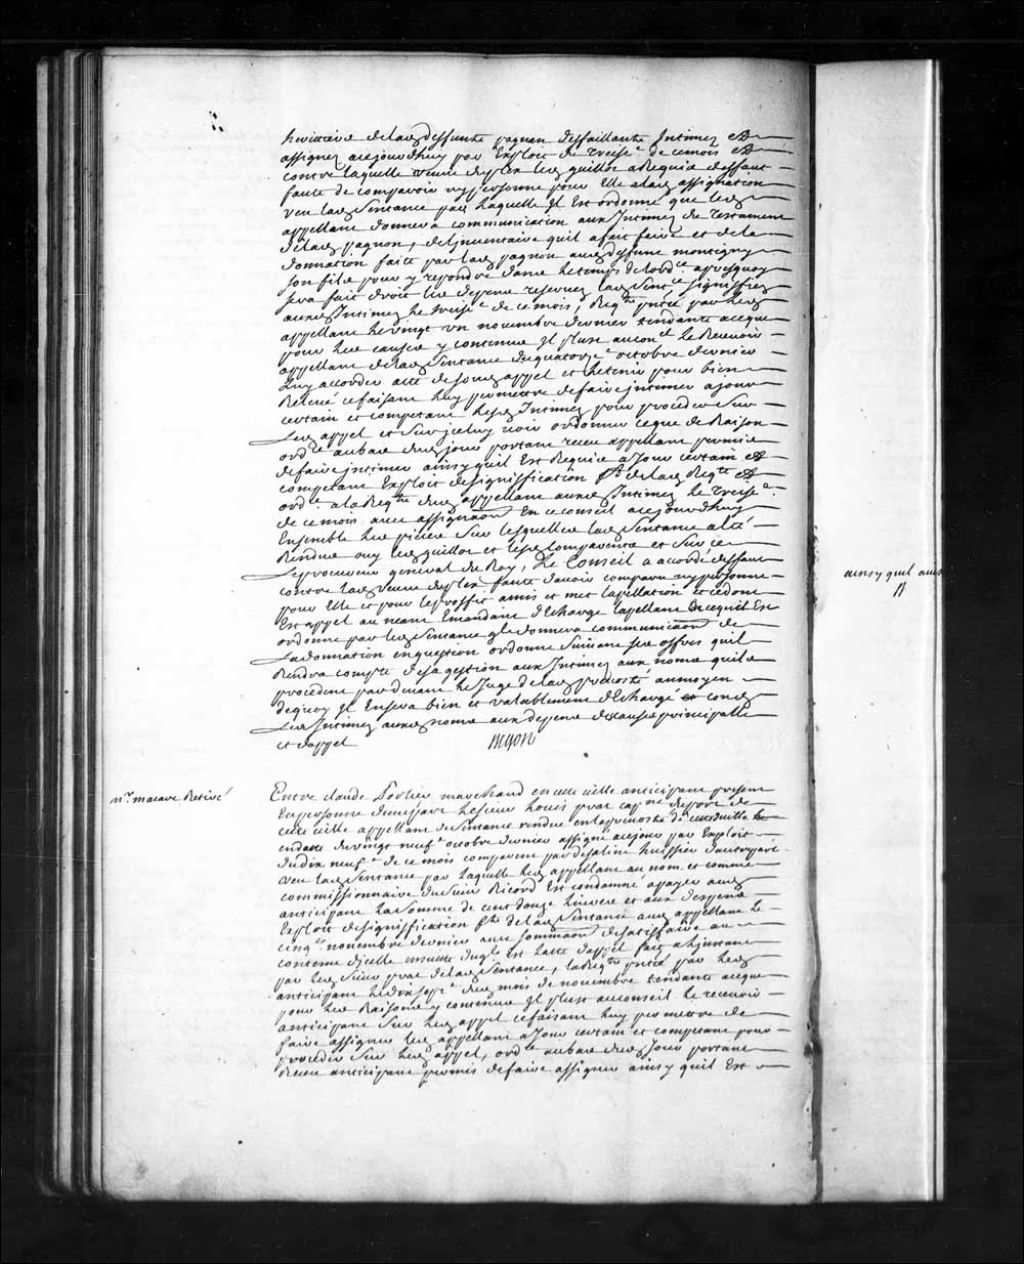 heritiere de lad. deffunte pagnon deffaillante Intimez et
assignez a cejourdhuy par Exploit de treize.e de cemois et
contre laquelle veuve led. guillot a Requis deffaut
faute de comparoir ny personne pour Elle a lad. assignation
veu lad. Sentance par Laquelle Il Est ordonné que led.
appellant donnera communication aux Intimez du testament
de lad. pagnon, de l'jnventaire quil a fait faire et de la
donnation faite par lad. pagnon aud. deffunt montigny
son fils pour y repondre dans le temps de lord.ce apresquoy
sera fait droit les depens reservez lad. Sent.ce signiffiez
auxd. Intimez le treize.e de ce mois, Req.te pntée par led.
appellant le vingt un novembre dernier tendante a ceque
pour les causes y contenues Il plust au con.el le Recevoir
appellant de lad. Sentance du quatorze.e octobre dernier
Luy accorder acte de soud. appel et le tenir pour bien
Relevé ce faisant luy permettre de faire jntimer a jour
certain et competant lesd. Intimez pour proceder Sur
Led. appel et Sur jceluy voir ordonner ceque de Raison
ord.ce aubas dud. jour portant receu appellant permis
de faire jntimer ainsy quil Est Requis a Jour certain et
competant Exploit de signiffication de lad. Req.te et
ord.ce a la Req.te dud. appellant auxd. Intimez le treize.e
de ce mois avec assignaon En ce conseil a cejourdhuy
Ensemble les pieces sur lesquelles lad. Sentance a Eté
Rendue ouy led. guillot et lesd. Comparents et Sur ce
Le procureur general du Roy, Le Conseil a accordé deffaut
contre lad. veuve faute davoir comparu ny personne
pour Elle et pour le proffit a mis et met lapellation et cedont
Est appel au neant Emandant décharge lapellant En cequil Est
ordonné par lad. Sentance quil donnera communicaon de
La donnation en question ordonne Suivant ses offres quil
Rendra compte de sa gestion aux Intimez aux noms quils
procedent pardevant le Juge de lad. prevosté aumoyen
dequoy Il En sera bien et valablement déchargé et cond.
Les Intimez auxd. noms aux depens des causes principalle
et dappel
Begon
mr. macarc Retiré
Entre claude Porlier marchand en cette ville anticipant present
En personne le sieur Louis prat cap.ne de port de
cette ville appellant de Sentance rendue en la prevosté de cette ville
en datte du vingt neuf.e octobre dernier assigné a cejour par Exploit
du dix neuf.e de ce mois comparant par de saline huissier dautre part
veu lad. Sentance par laquelle led. appellant au nom et comme
commissionnaire du Sieur Ricord Est condamné a payer aud.
anticipant la Somme de cent douze livres et aux depens
Exploit de signiffication de lad. Sentance aud. appellant le
cinq.e novembre dernier avec sommaon de satisfaire au
contenu dicelle ensuitte duquel Est lacte dappel fait a linstant
par led. Sieur prat de lad. Sentance, la Req.te pntée par led.
anticipant le dix sep.e dud. mois de novembre tendante aceque
pour les Raisons y contenues Il plust au conseil le recevoir
anticipant Sur led. appel ce faisant luy permettre de
faire assigner led. appellant a Jour certain et competant pour
proceder Sur led. appel, ord.ce aubas dud. Jour portant
Receu anticipant permis de faire assigner ainsy quil Est
ainsy quil